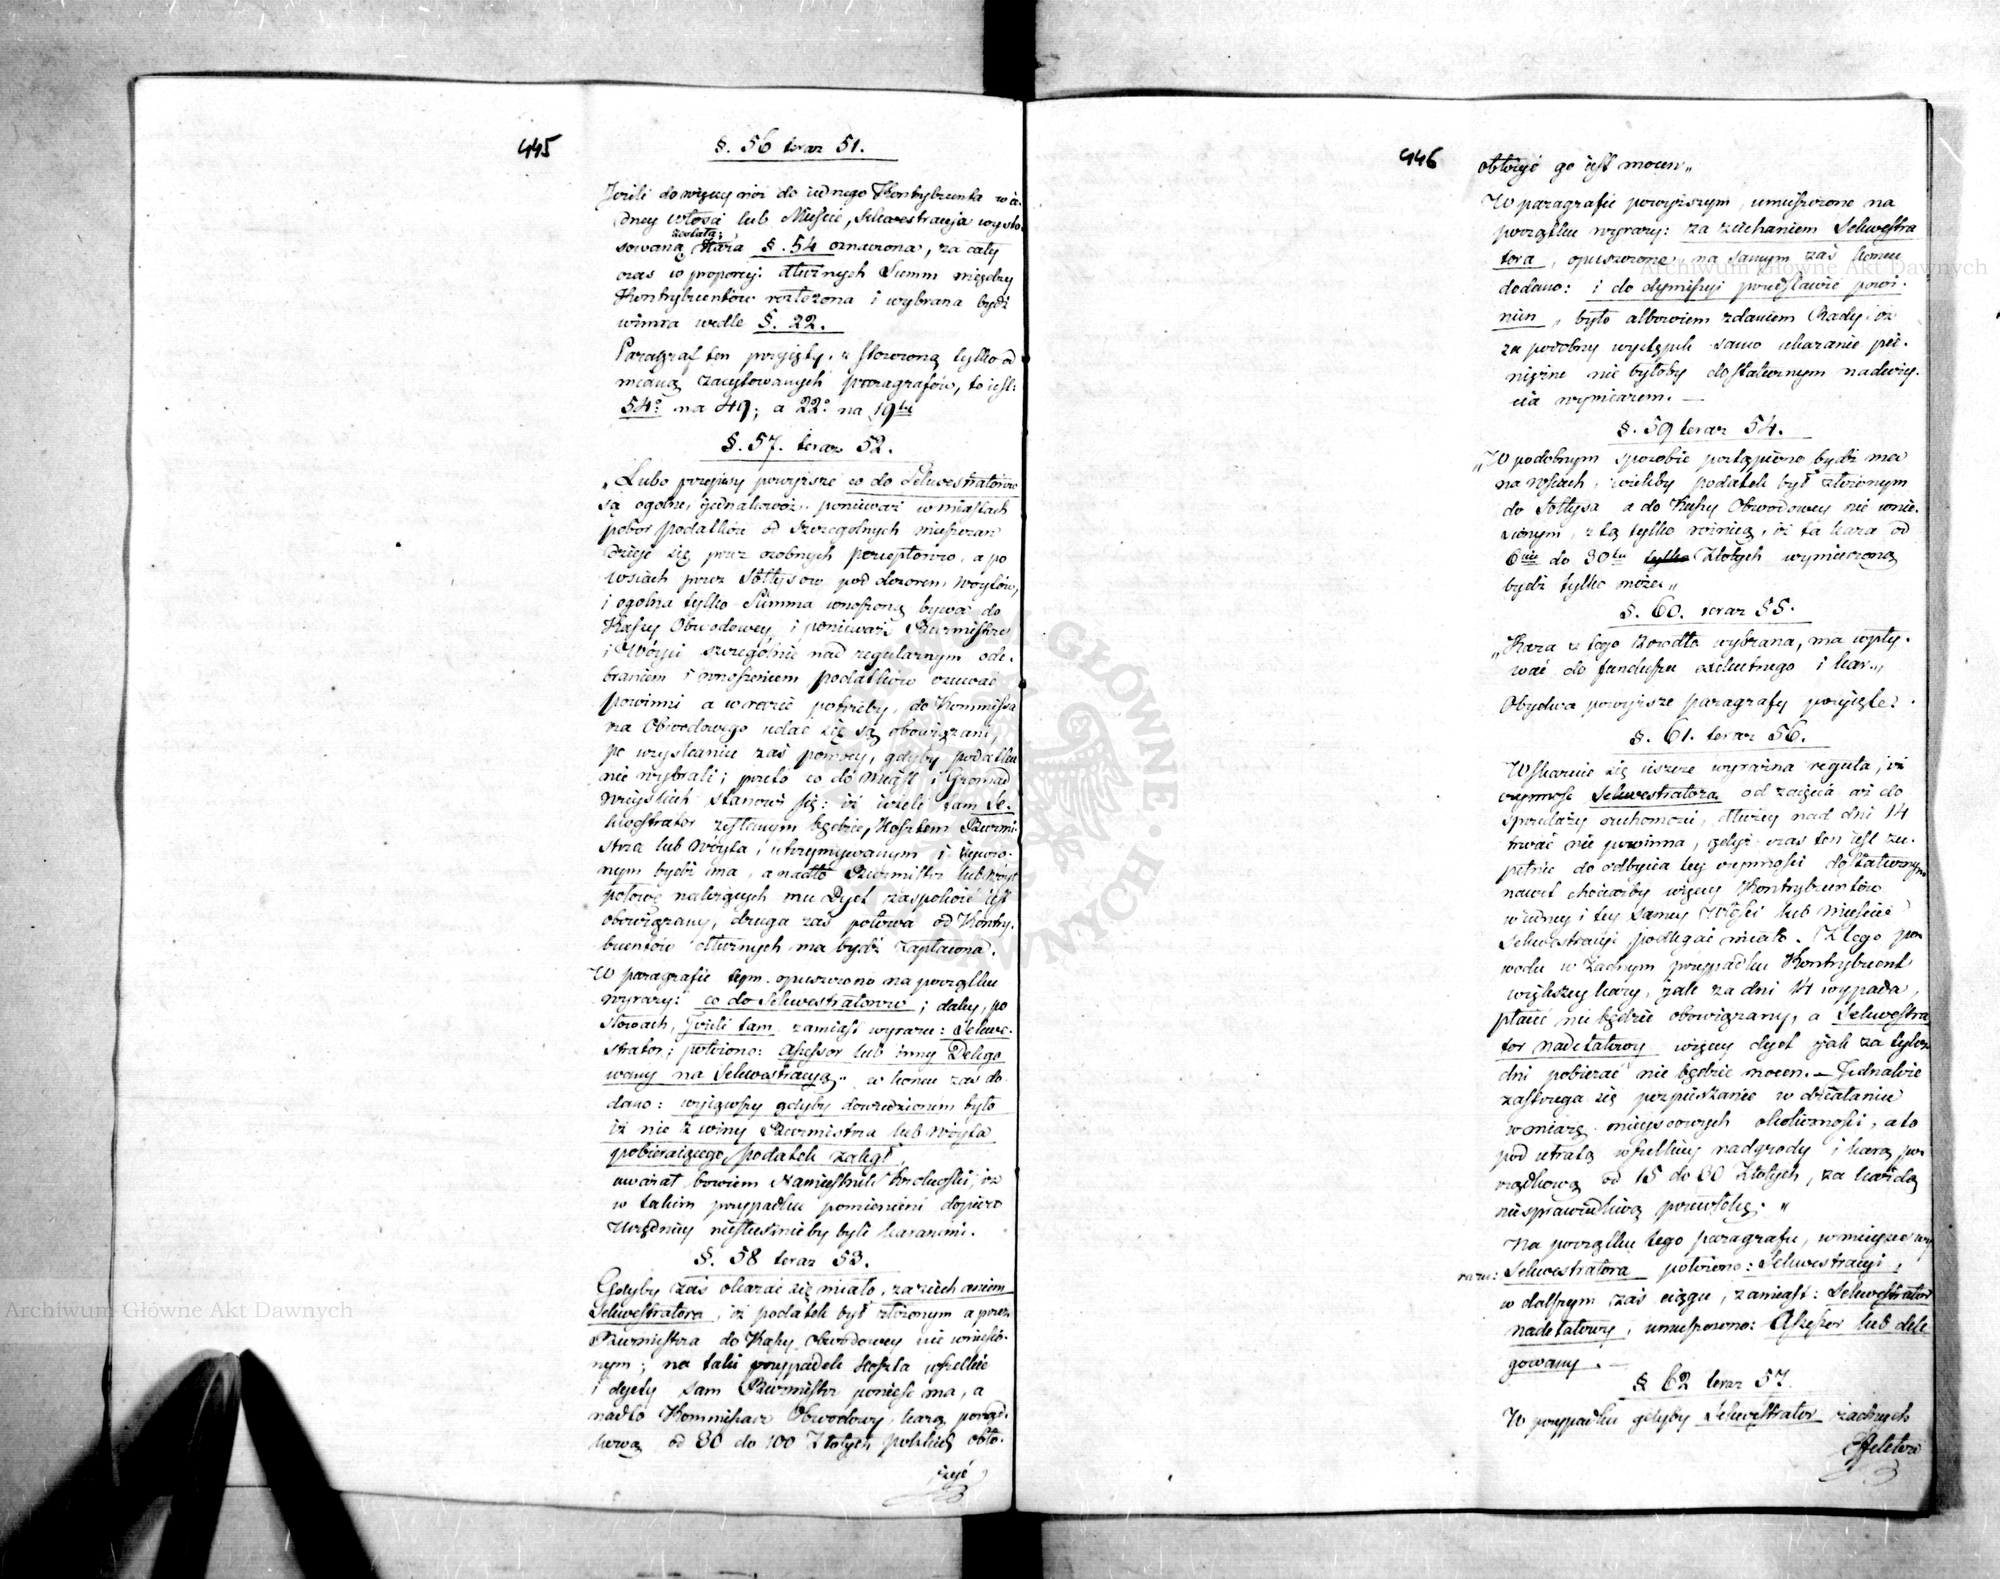 445
§. 56 teraz 51.
Jeżeli do więcey niż do iednego Kontrybuenta w ie-
dney włości lub Mieście, Sekwestracyja wysto-
sowaną zostałą; Kara §. 54 oznaczona, za cały
czas w proporcyi dłużnych Summ między
Kontrybuentów rozłożona i wybrana bydź
winna wedle §. 22.
Paragraf ten przyięty, z stosowną tylko od-
mianą zacytowanych paragrafów, to iest:
54º na 49; a 22º na 19ty
§. 57. teraz 52.
„Lubo przepisy powyższe co do Sekwestratorów
są ogólne, jednakowoż, ponieważ w miastach
pobór podatków od szczególnych mieszczan
dzieje się przez osobnych perceptorów, a po
wsiach przez Sołtysów pod dozorem Woytów,
i ogólna tylko Summa wnoszoną bywa do
Kassy Obwodowey, i ponieważ Burmistrze
i Wóyci szczególnie nad regularnym ode-
braniem i wnoszeniem podatków czuwać
powinni a w razie potrzeby, do Kommissa-
rza Obwodowego udać się są obowiązani,
po uzyskaniu zaś pomocy, gdyby podatku
nie wybrali; przeto co do Miast i Gromad
Wieyskich stanowi się: iż ieżeli tam Se-
kwestrator zesłanym będzie, Kosztem Burmi-
strza lub Wóyta, utrzymywanym i żywio-
nym bydź ma, a nadto Burmistrz lub Wóyt
połowę należących mu Dyet zaspokoić iest
obowiązany, druga zaś połowa od Kontry-
buentów dłużnych ma bydź zapłacona.
W paragrafie tym opuszczono na początku
wyrazy: co do Sekwestratorów; daley, po
słowach, Jeżeli tam zamiast wyrazu: Sekwe-
strator; położono: Assessor lub inny Delego-
wany na Sekwestracyą. w końcu zaś do-
dano: wyiąwszy gdyby dowiedzionem było
iż nie z winy Burmistrza lub Wóyta
pobieraiącego, podatek zaległ.
uważał bowiem Namiestnik Królewski, iż
w takim przypadku pomienieni dopiero
Urzędnicy niesłusznieby byli karanemi.
§. 58 teraz 53.
Gdyby zaś okazać się miało, za ziechaniem
Sekwestratora, iż podatek był złożonym a przez
Burmistrza do Kassy Obwodowey nie wniesio-
nym; na taki przypadek Koszta wszelkie
i dyety sam Burmistrz ponieść ma, a
nadto Kommissarz Obwodowy, karą porząd-
kową od 30 do 100 Złotych polskich obło-
żyć
446
obłożyć go iest mocen„
W paragrafie powyższym, umieszczone na
początku wyrazy: za ziechaniem Sekwestra-
tora, opuszczone, na samym zaś końcu
dodano: i do dymissyi przedstawić powi-
nien, było albowiem zdaniem Rady, iż
za podobny występek samo ukaranie pie-
niężne nie byłoby dostatecznym nadużyc-
cia wymiarem. —
§. 59 teraz 54.
„W podobnym sposobie postąpiono bydź ma
na wsiach, ieżeliby podatek był złożonym
do Sołtysa a do Kassy Obwodowey nie wnie-
sionym, z tą tylko różnicą, iż ta kara od
6ciu do 30tu tylko Złotych wymierzoną
bydź tylko może„
§. 60. teraz 55.
„Kara z tego źrzódła wybrana, ma wpły-
wać do funduszu exekutnego i kar.„
Obydwa powyższe paragrafy przyięte.
§. 61. teraz 56.
Wskazuie się ieszcze wyraźna reguła, iż
czynność Sekwestratora od zaięcia aż do
sprzedaży ruchomości, dłużey nad dni 14
trwać nie powinna, gdyż czas ten iest zu-
pełnie do odbycia tey czynności dostatecznym
nawet chociażby więcey Kontrybuentów
w iedney i tey samey Włości lub Mieście
Sekwestracyi podlegać miało. Z tego po-
wodu w żadnym przypadku Kontrybuent
większey kary, jak za dni 14 wypada,
płacić nie będzie obowiązany, a Sekwestra-
tor nadetatowy więcey dyet jak za tyleż
dni pobierać nie będzie mocen. — Jednakże
zastrzega się pośpieszanie w działaniu
w miarę mieyscowych okoliczności, a to
pod utratą wszelkiey nadgrody i karą po-
rządkową od 15 do 30 Złotych, za każdą
niesprawiedliwą przewłokę. „
Na początku tego paragrafu, w mieysce wy-
razu: Sekwestratora położono: Sekwestracyi,
w dalszym zaś ciągu, zamiast: Sekwestrator
nadetatowy, umieszczono: Assessor lub dele-
gowany. —
§ 62 teraz 57.
W przypadku gdyby Sekwestrator żadnych
Effektów
Archiwum Główne Akt Dawnych
Archiwum Główne Akt Dawnych